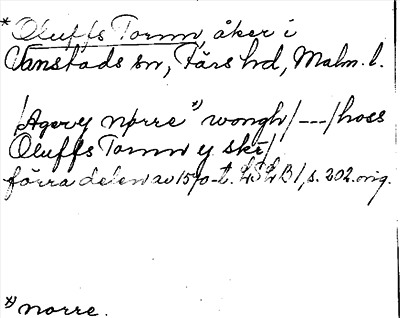 *Oluffs Tornn, åker i
Vanstads sn, Färs hd, Malm. l.
/Ager y nørre x) wongh/ --- /hoss
Oluffs Tornn y skr/
förra delen av 1570-t. LSLB 1, s. 202. orig.
x) norre.